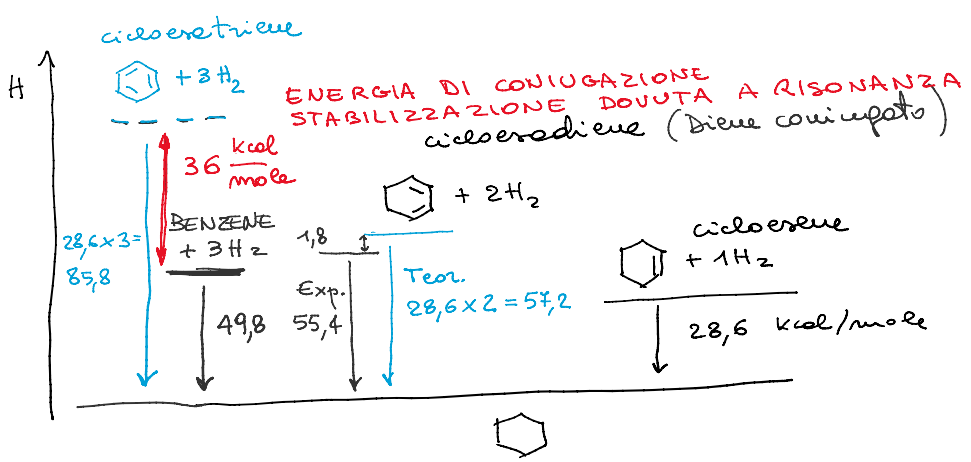 cicloesatriene
H
+ 3H2
ENERGIA DI CONIUGAZIONE
STABILIZZAZIONE DOVUTA A RISONANZA
cicloesadiene (Diene coniugato)
36 kcal/mole
+ 2H2
BENZENE
+ 3H2
1,8
cicloesene
+ 1H2
28,6 x 3 =
85,8
Exp.
55,4
Teor.
28,6 x 2 = 57,2
49,8
28,6 kcal/mole